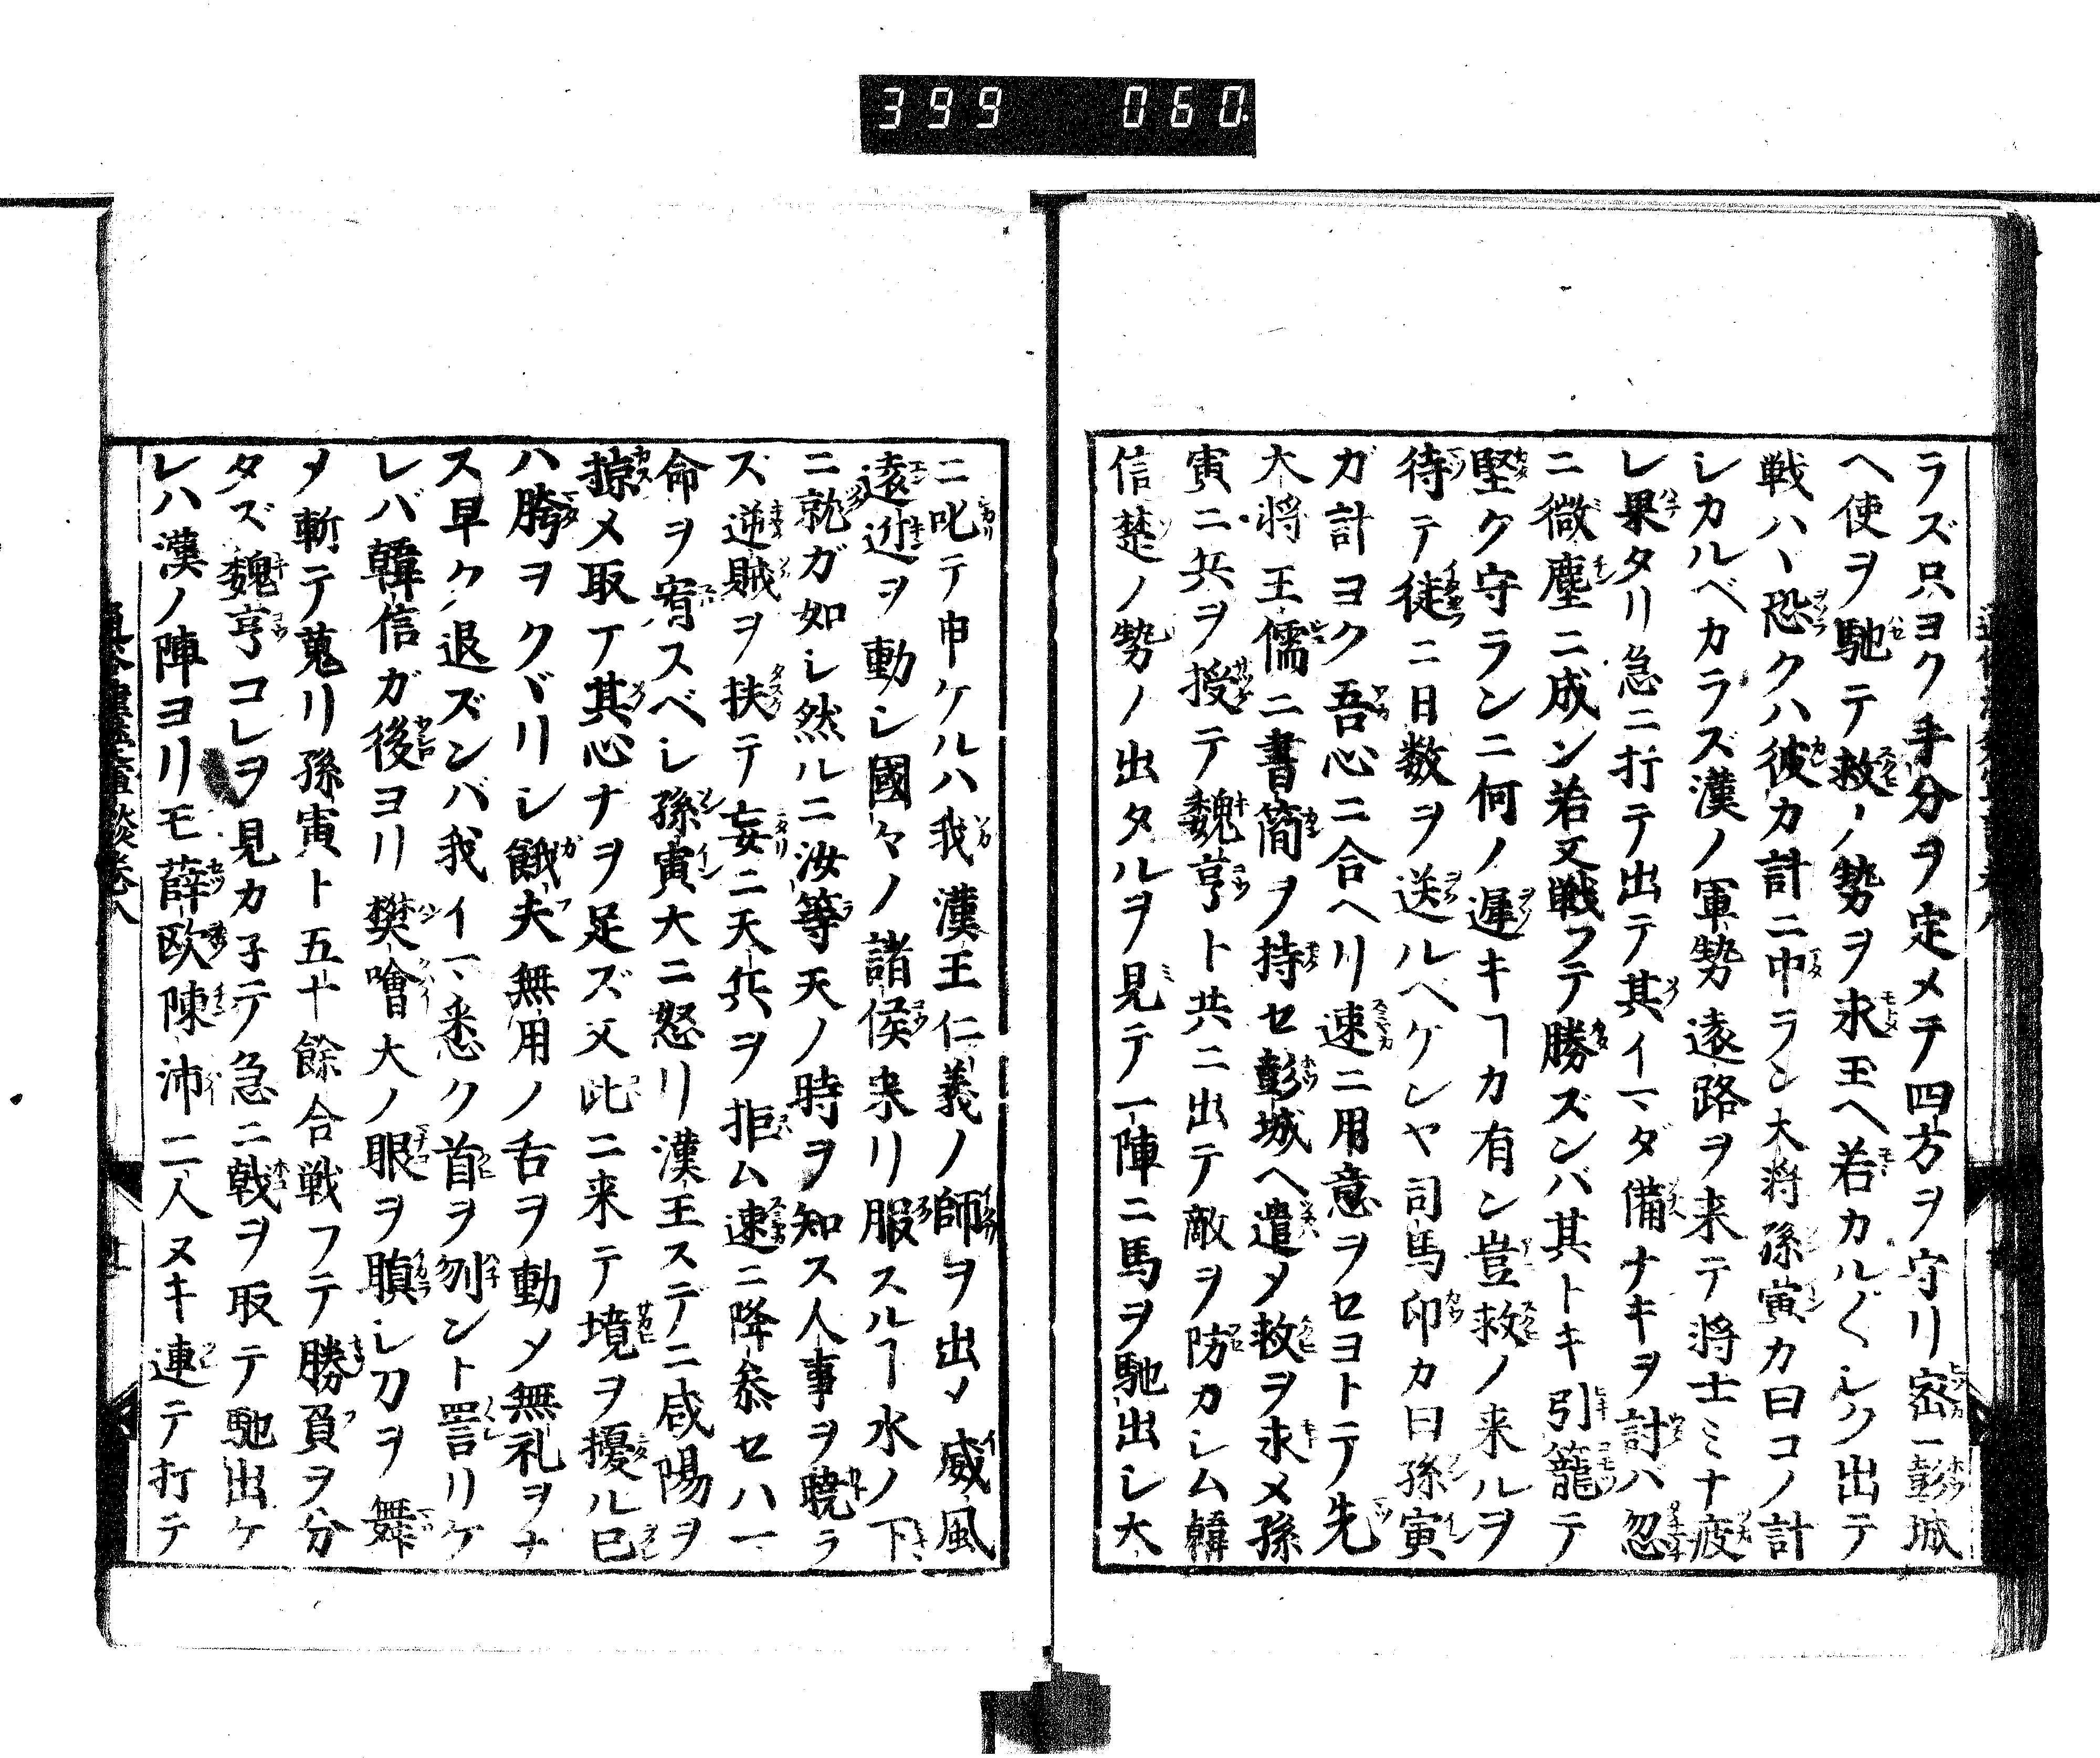 399 060
ラズ只ヨク手分ヲ定メテ四方ヲ守リ密ニ彭城
ヘ使ヲ馳テ救ノ勢ヲ求玉ヘ若カル〴〵シク出テ
戦ハヽ恐クハ彼カ計ニ中ラン大将孫寅カ曰コノ計
シカルベカラズ漢ノ軍勢遠路ヲ来テ将士ミナ疲
レ果タリ急ニ打テ出テ其イマダ備ナキヲ討バ忽
ニ微塵ニ成ン若又戦フテ勝ズンバ其トキ引籠テ
堅ク守ランニ何ノ遅キヿカ有ン豈救ノ来ルヲ
待テ徒ニ日数ヲ送ルベケンヤ司馬卬カ曰孫寅
ガ計ヨク吾心ニ合ヘリ速ニ用意ヲセヨトテ先
大将王儒ニ書簡ヲ持セ彭城ヘ遣メ救ヲ求メ孫
寅ニ兵ヲ授テ魏亨ト共ニ出テ敵ヲ防カシム韓
信楚ノ勢ノ出タルヲ見テ一陣ニ馬ヲ馳出シ大
ニ叱テ申ケルハ我漢王仁義ノ師ヲ出ノ威風
遠近ヲ動シ國々ノ諸侯来リ服スルヿ水ノ下
ニ就ガ如シ然ルニ汝等天ノ時ヲ知ス人事ヲ暁ラ
ス逆賊ヲ扶テ妄ニ天兵ヲ拒ム速ニ降参セハ一
命ヲ宥スベシ孫寅大ニ怒リ漢王ステニ咸陽ヲ
掠メ取テ其心ナヲ足ズ又此ニ来テ境ヲ擾ル已
ハ胯ヲクヾリシ餓夫無用ノ舌ヲ動メ無礼ヲナ
ス早ク退ズンバ我イマ悉ク首ヲ刎ント詈リケ
レバ韓信ガ後ヨリ樊噲大ノ眼ヲ瞋シ刀ヲ舞
メ斬テ蒐リ孫寅ト五十餘合戦フテ勝負ヲ分
タズ魏亨コレヲ見カ子テ急ニ戟ヲ取テ馳出ケ
レハ漢ノ陣ヨリモ薛欧陳沛二人ヌキ連テ打テ